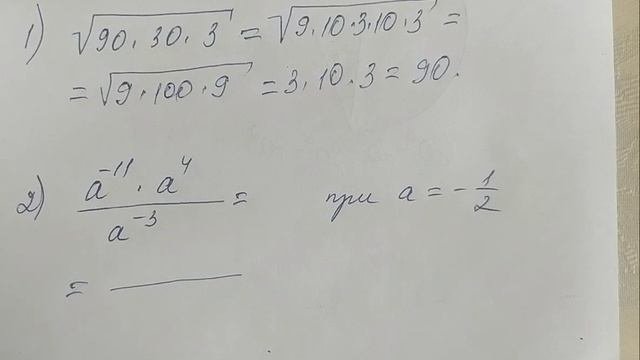 1) √(90·30·3) = √(9·10·3·10·3) =
= √(9·100·9) = 3·10·3 = 90.
2) (a⁻¹¹·a⁴)/(a⁻³) = при a = -1/2
= ―